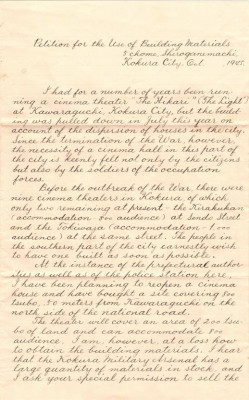 Petition for the Use of Building Materials
5 chome, Shiroganemachi,
Kokura City, Oct 1945.
I had for a number of years been run-
ning a cinema theater "The Hikari" (The Light)
at Kawaraguchi, Kokura City, but the build-
ing was pulled down in July this year on
account of the dispersion of houses in the city.
Since the termination of the War, however,
the necessity of a cinema hall in this part of
the city is keenly felt not only by the citizens
but also by the soldiers of the occupation
forces.
Before the outbreak of the War there were
nine cinema theaters in Kokura, of which
only two remaining at present: the
(accommodation: audience) at Street
and the Tokiwaza (accommodation:
audience) at the same street. The people in
the southern part of the city earnestly wish
to have one built as soon as possible.
At the instance of the prefectural author-
ities as well as of the police station here,
I have been planning to reopen a cinema
house and have bought a site covering
tsubo, 30 meters from Kawaraguchi on the
north side of the national road.
The theater will cover an area of tsu-
bo of land and can accommodate
audience. I am, however, at a loss how
to obtain the building materials. I hear
that the Kokura Military Arsenal has a
large quantity of materials in stock, and
I ask your special permission to sell the